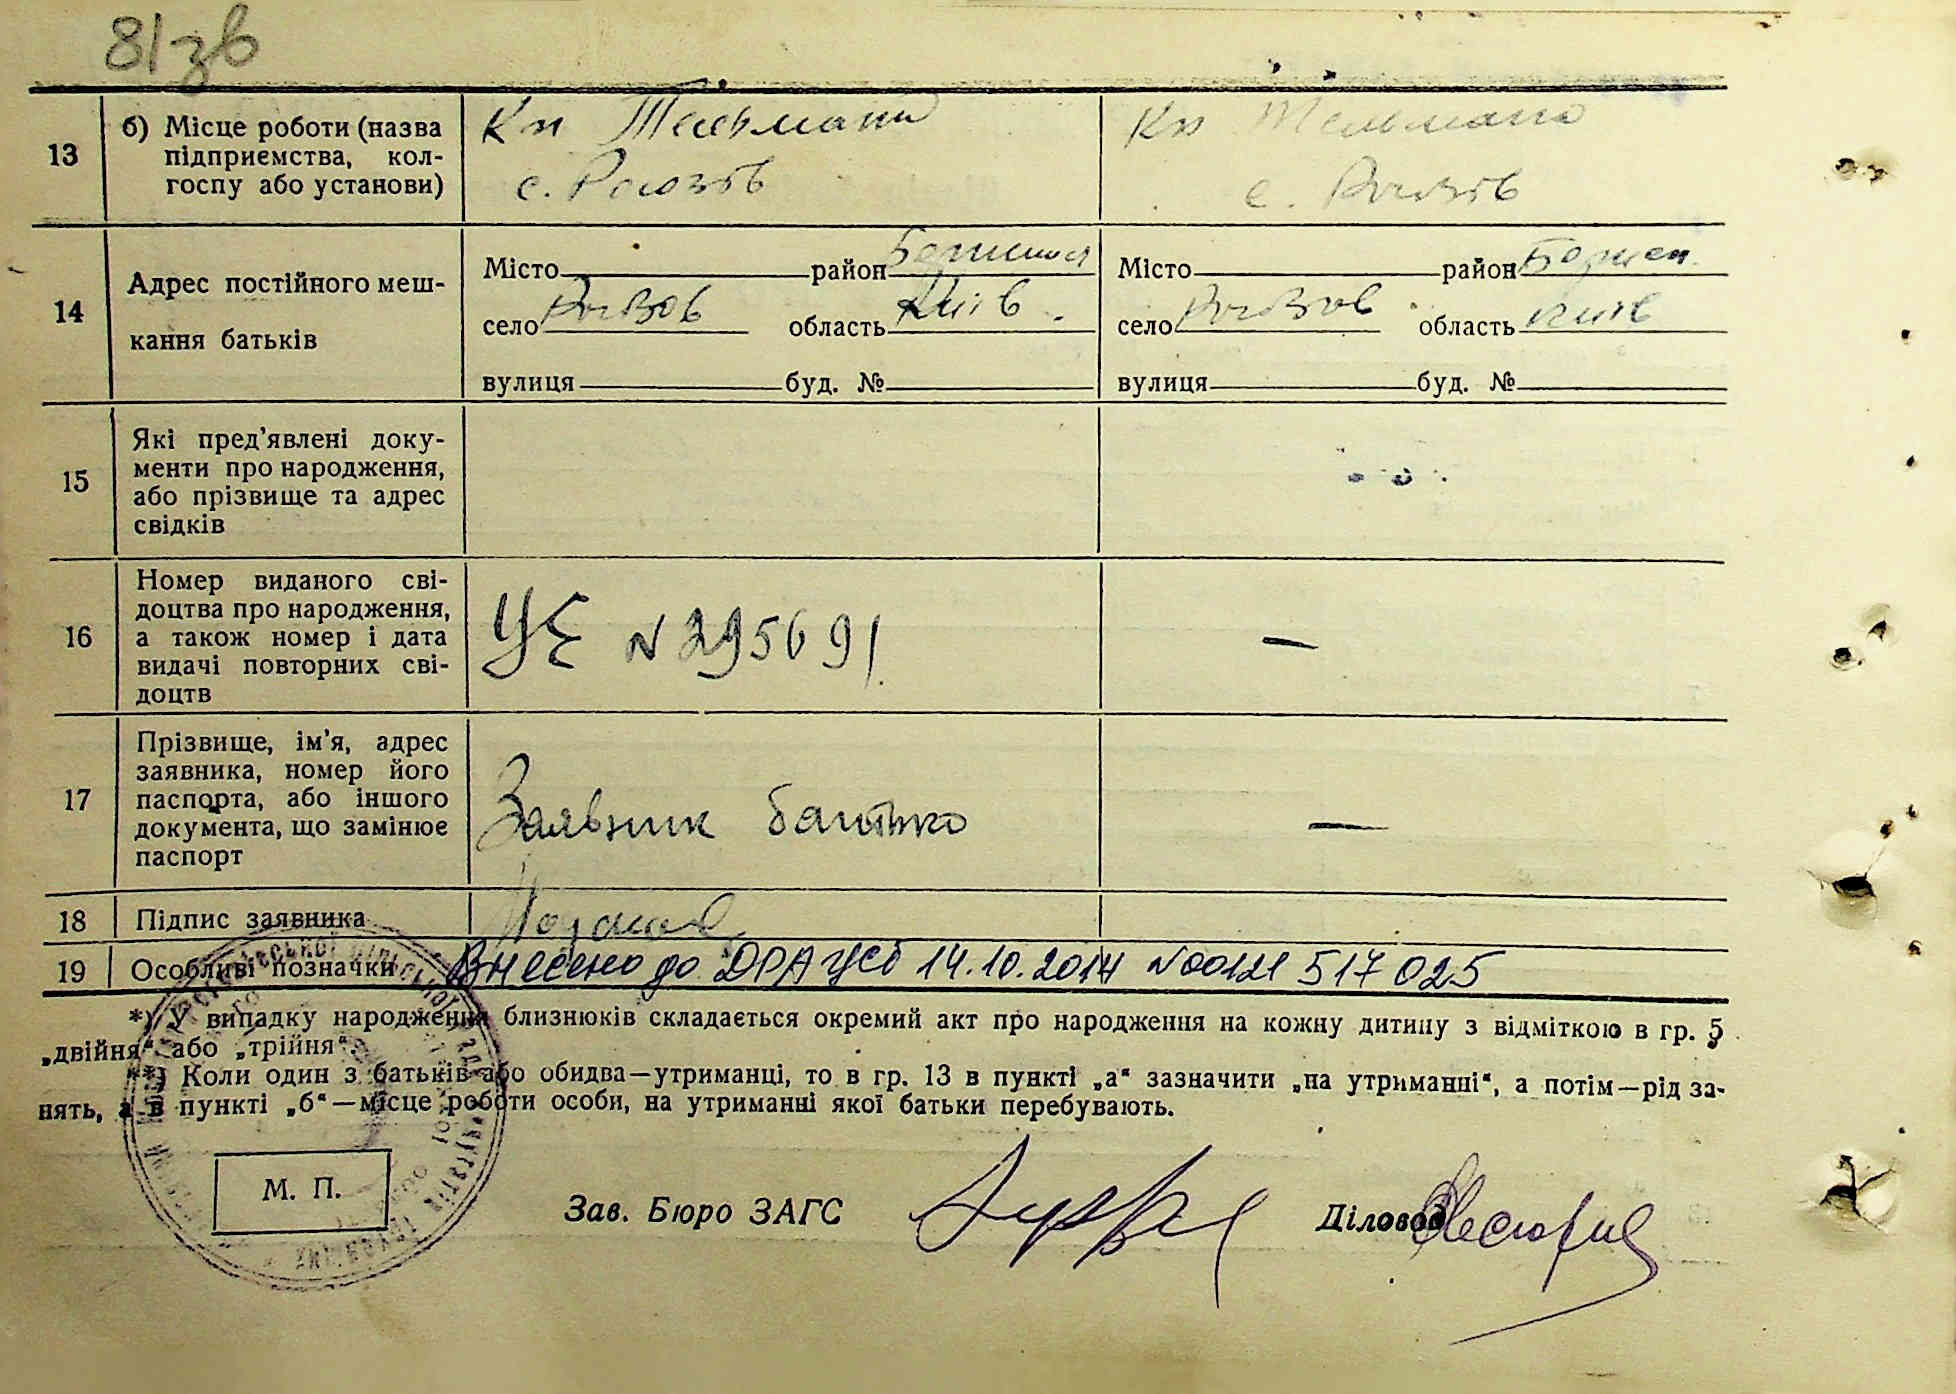 81зв
13
б) Місце роботи (назва
підприємства, кол-
госпу або установи)
Кп Тельмана
с. Рогозів
Кп Тельмана
с. Рогозів
14
Адрес постійного меш-
кання батьків
Місто район
село Рогозов область Київ
вулиця буд. №
Місто район Борисп
село Рогозов область Київ
вулиця буд. №
15
Які пред'явлені доку-
менти про народження,
або прізвище та адрес
свідків
16
Номер виданого сві-
доцтва про народження,
а також номер і дата
видачі повторних сві-
доцтв
УЕ N 295691
—
17
Прізвище, ім'я, адрес
заявника, номер його
паспорта, або іншого
документа, що замінює
паспорт
Заявник батько
—
18
Підпис заявника
19
Особливі позначки
Внесено до ДРАЦСг 14.10.2014 N00121 517 025
*) У випадку народження близнюків складається окремий акт про народження на кожну дитину з відміткою в гр. 5
„двійня“ або „трійня“.
**) Коли один з батьків або обидва—утриманці, то в гр. 13 в пункті „а“ зазначити „на утриманні“, а потім—рід за-
нять, а в пункті „б“—місце роботи особи, на утриманні якої батьки перебувають.
М. П.
Зав. Бюро ЗАГС
Діловод